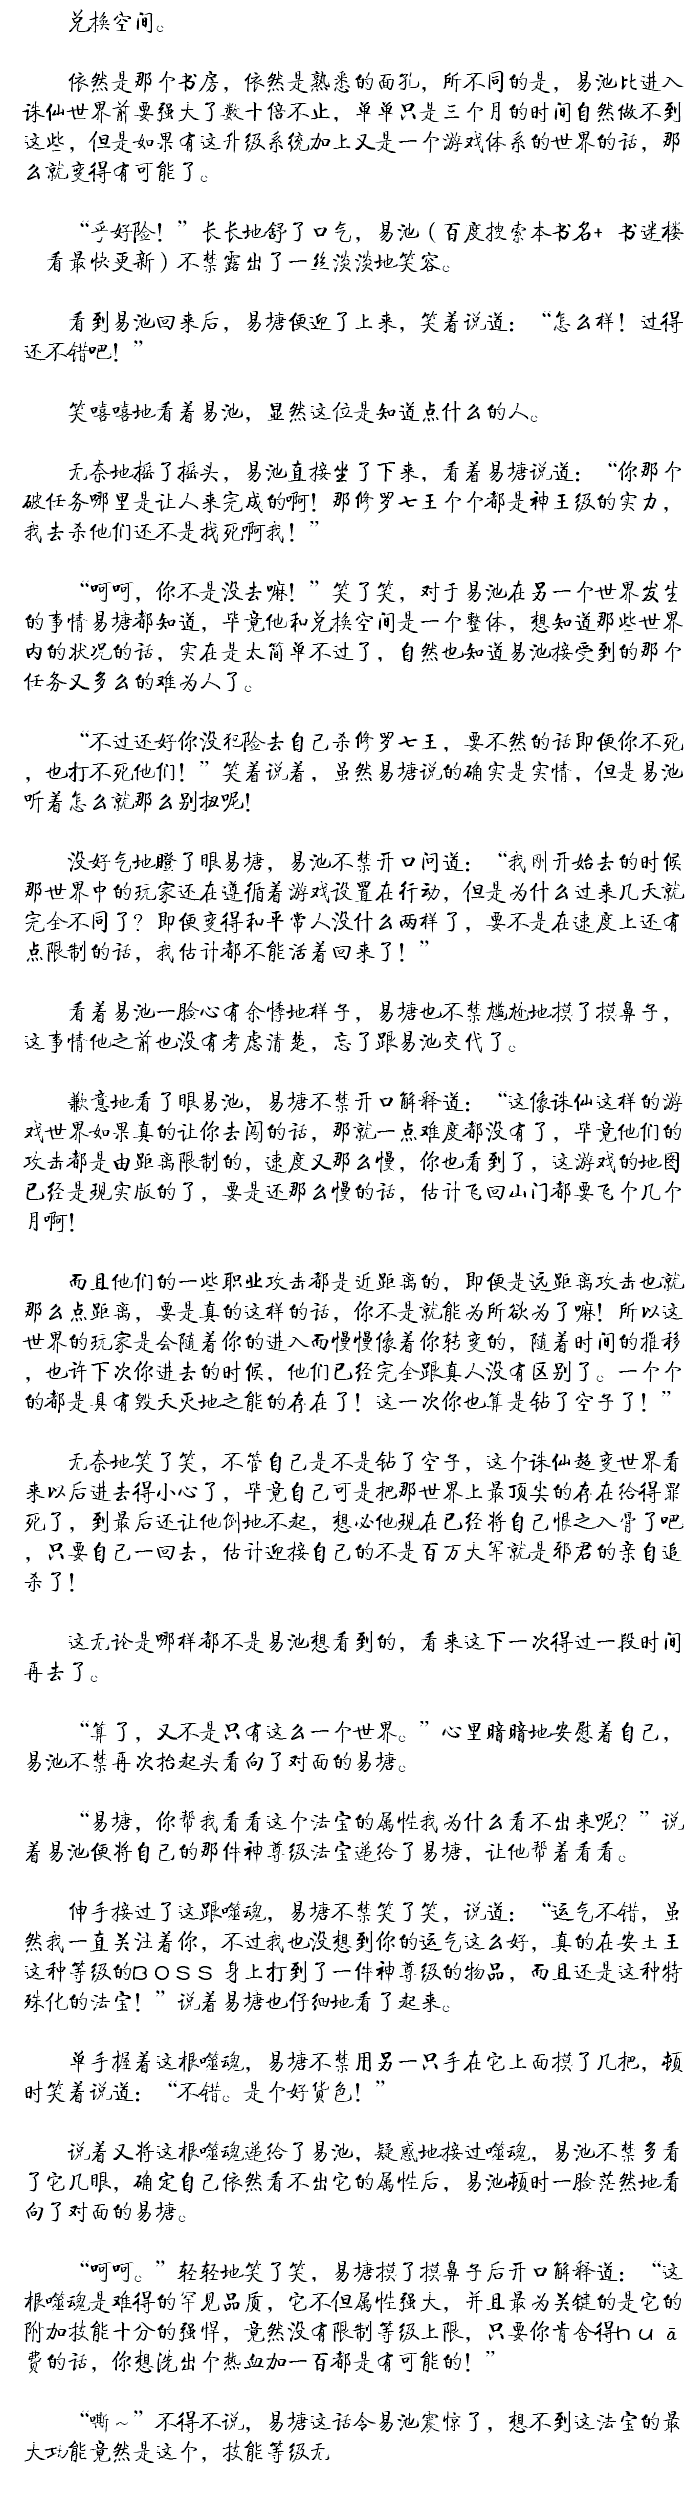 兑换空间。
依然是那个书房，依然是熟悉的面孔，所不同的是，易池比进入
诛仙世界前要强大了数十倍不止，单单只是三个月的时间自然做不到
这些，但是如果有这升级系统加上又是一个游戏体系的世界的话，那
么就变得有可能了。
“乎好险！”长长地舒了口气，易池（百度搜索本书名+ 书迷楼
看最快更新）不禁露出了一丝淡淡地笑容。
看到易池回来后，易塘便迎了上来，笑着说道：“怎么样！过得
还不错吧！”
笑嘻嘻地看着易池，显然这位是知道点什么的人。
无奈地摇了摇头，易池直接坐了下来，看着易塘说道：“你那个
破任务哪里是让人来完成的啊！那修罗七王个个都是神王级的实力，
我去杀他们还不是找死啊我！”
“呵呵，你不是没去嘛！”笑了笑，对于易池在另一个世界发生
的事情易塘都知道，毕竟他和兑换空间是一个整体，想知道那些世界
内的状况的话，实在是太简单不过了，自然也知道易池接受到的那个
任务又多么的难为人了。
“不过还好你没犯险去自己杀修罗七王，要不然的话即便你不死
，也打不死他们！”笑着说着，虽然易塘说的确实是实情，但是易池
听着怎么就那么别扭呢！
没好气地瞪了眼易塘，易池不禁开口问道：“我刚开始去的时候
那世界中的玩家还在遵循着游戏设置在行动，但是为什么过来几天就
完全不同了？即便变得和平常人没什么两样了，要不是在速度上还有
点限制的话，我估计都不能活着回来了！”
看着易池一脸心有余悸地样子，易塘也不禁尴尬地摸了摸鼻子，
这事情他之前也没有考虑清楚，忘了跟易池交代了。
歉意地看了眼易池，易塘不禁开口解释道：“这像诛仙这样的游
戏世界如果真的让你去闯的话，那就一点难度都没有了，毕竟他们的
攻击都是由距离限制的，速度又那么慢，你也看到了，这游戏的地图
已经是现实版的了，要是还那么慢的话，估计飞回山门都要飞个几个
月啊！
而且他们的一些职业攻击都是近距离的，即便是远距离攻击也就
那么点距离，要是真的这样的话，你不是就能为所欲为了嘛！所以这
世界的玩家是会随着你的进入而慢慢像着你转变的，随着时间的推移
，也许下次你进去的时候，他们已经完全跟真人没有区别了。一个个
的都是具有毁天灭地之能的存在了！这一次你也算是钻了空子了！”
无奈地笑了笑，不管自己是不是钻了空子，这个诛仙超变世界看
来以后进去得小心了，毕竟自己可是把那世界上最顶尖的存在给得罪
死了，到最后还让他倒地不起，想必他现在已经将自己恨之入骨了吧
，只要自己一回去，估计迎接自己的不是百万大军就是邪君的亲自追
杀了！
这无论是哪样都不是易池想看到的，看来这下一次得过一段时间
再去了。
“算了，又不是只有这么一个世界。”心里暗暗地安慰着自己，
易池不禁再次抬起头看向了对面的易塘。
“易塘，你帮我看看这个法宝的属性我为什么看不出来呢？”说
着易池便将自己的那件神尊级法宝递给了易塘，让他帮着看看。
伸手接过了这跟噬魂，易塘不禁笑了笑，说道：“运气不错，虽
然我一直关注着你，不过我也没想到你的运气这么好，真的在安土王
这种等级的BOSS身上打到了一件神尊级的物品，而且还是这种特
殊化的法宝！”说着易塘也仔细地看了起来。
单手握着这根噬魂，易塘不禁用另一只手在它上面摸了几把，顿
时笑着说道：“不错。是个好货色！”
说着又将这根噬魂递给了易池，疑惑地接过噬魂，易池不禁多看
了它几眼，确定自己依然看不出它的属性后，易池顿时一脸茫然地看
向了对面的易塘。
“呵呵。”轻轻地笑了笑，易塘摸了摸鼻子后开口解释道：“这
根噬魂是难得的罕见品质，它不但属性强大，并且最为关键的是它的
附加技能十分的强悍，竟然没有限制等级上限，只要你肯舍得huā
费的话，你想洗出个热血加一百都是有可能的！”
“嘶～”不得不说，易塘这话令易池震惊了，想不到这法宝的最
大功能竟然是这个，技能等级无